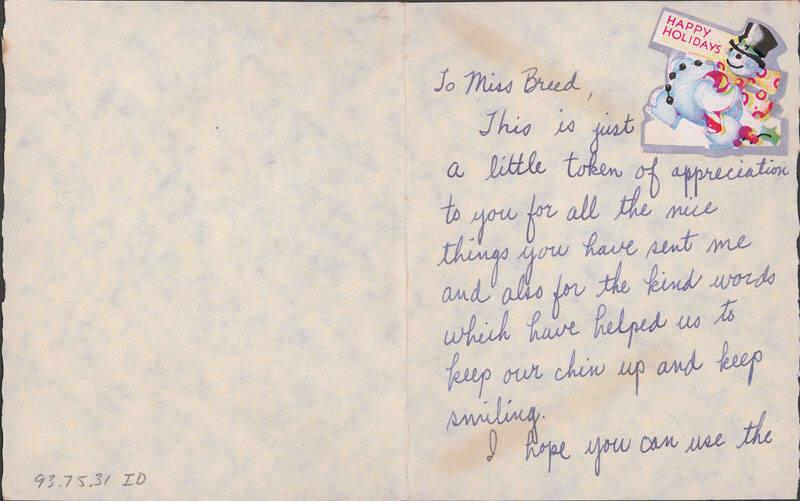 HAPPY
HOLIDAYS
To Miss Breed,
This is just
a little token of appreciation
to you for all the nice
things you have sent me
and also for the kind words
which have helped us to
keep our chin up and keep
smiling.
I hope you can use the
93.75.31 ID